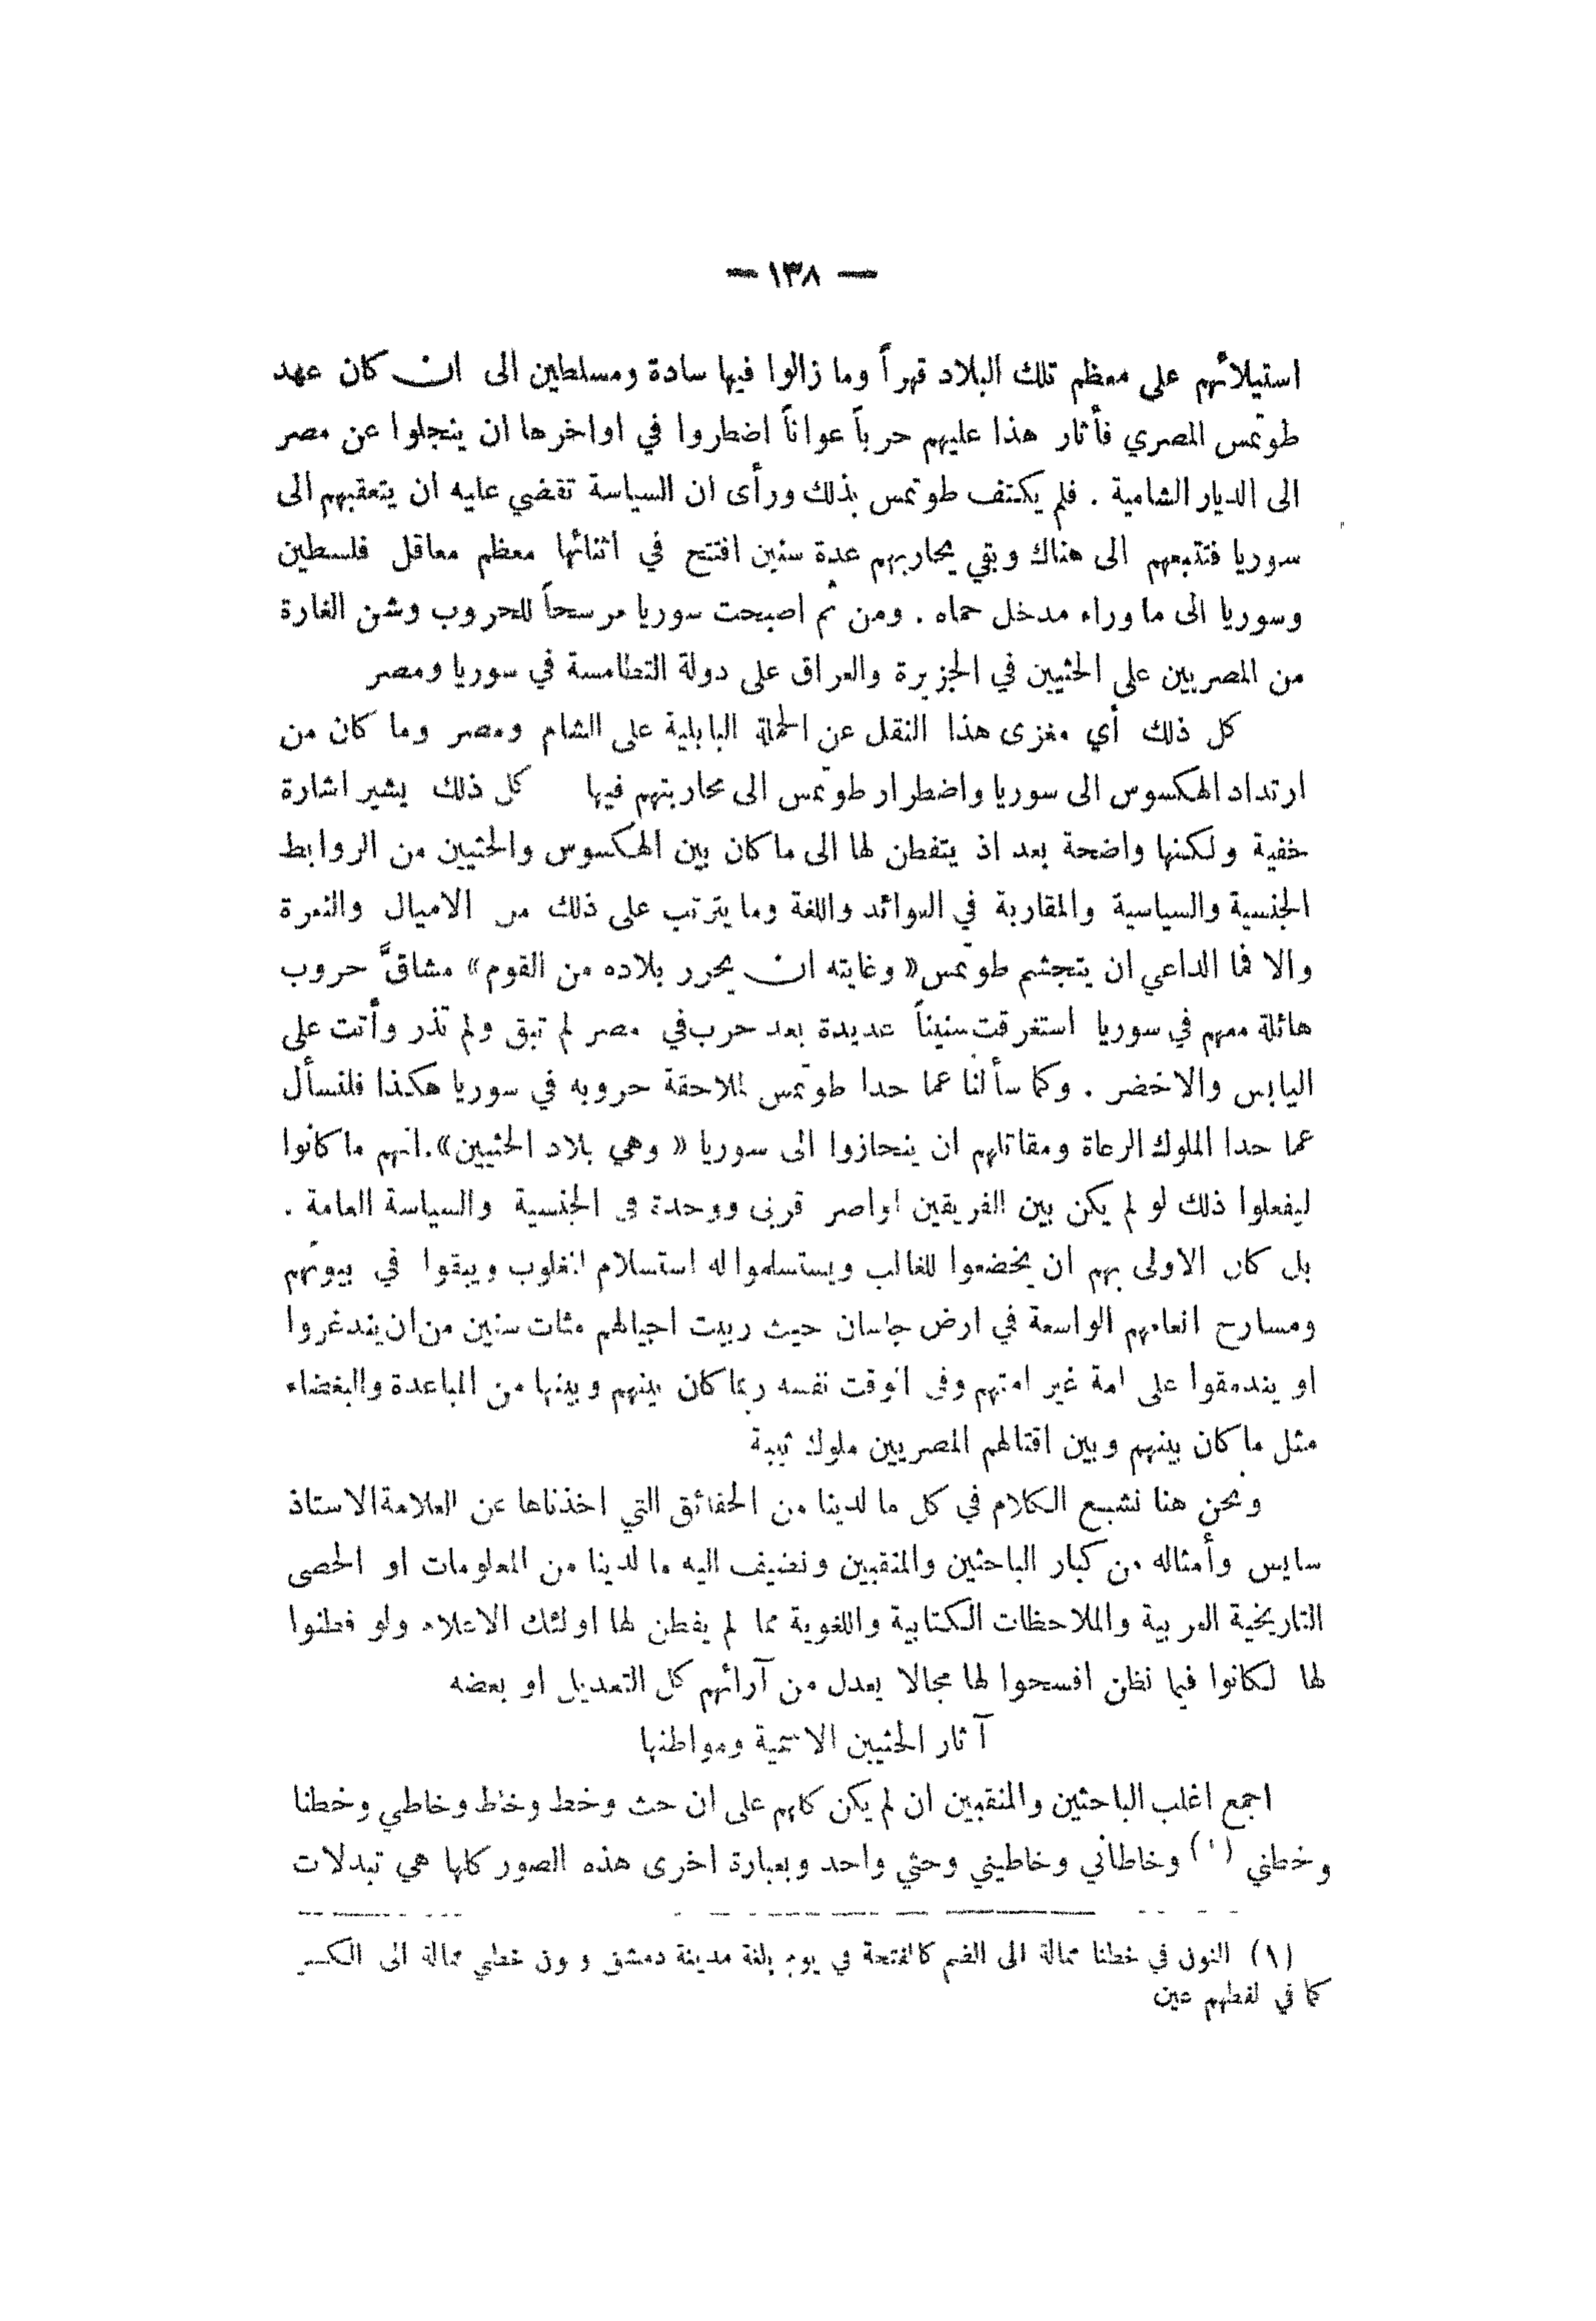 — ١٣٨ —
استيلائهم على معظم تلك البلاد قهراً وما زالوا فيها سادة ومسلطين الى ان كان عهد
طوتمس المصري فأثار هذا عليهم حرباً عواناً اضطروا في اواخرها ان ينجلوا عن مصر
الى الديار الشامية . فلم يكتف طوتمس بذلك ورأى ان السياسة تقضي عليه ان يتعقبهم الى
سوريا فتتبعهم الى هناك وبقي يحاربهم عدة سنين افتتح في اثنائها معظم معاقل فلسطين
وسوريا الى ما وراء مدخل حماه . ومن ثم اصبحت سوريا مرسحاً للحروب وشن الغارة
من المصريين على الحثيين في الجزيرة والعراق على دولة التطامسة في سوريا ومصر
كل ذلك أي مغزى هذا النقل عن الحملة البابلية على الشام ومصر وما كان من
ارتداد الهكسوس الى سوريا واضطرار طوتمس الى محاربتهم فيها كل ذلك يشير اشارة
خفية ولكنها واضحة بعد اذ يتفطن لها الى ما كان بين الهكسوس والحثيين من الروابط
الجنسية والسياسية والمقاربة في العوائد واللغة وما يترتب على ذلك من الاميال والنعرة
والا فما الداعي ان يتجشم طوتمس « وغايته ان يحرر بلاده من القوم » مشاقَّ حروب
هائلة معهم في سوريا استغرقت سنيناً عديدة بعد حرب في مصر لم تبق ولم تذر وأتت على
اليابس والاخضر . وكما سألنا عما حدا طوتمس لملاحقة حروبه في سوريا هكذا فلنسأل
عما حدا الملوك الرعاة ومقاتلهم ان ينحازوا الى سوريا « وهي بلاد الحثيين ». انهم ما كانوا
ليفعلوا ذلك لو لم يكن بين الفريقين اواصر قربى ووحدة في الجنسية والسياسة العامة .
بل كان الاولى بهم ان يخضعوا للغالب ويستسلموا له استسلام المغلوب ويبقوا في بيوتهم
ومسارح انعامهم الواسعة في ارض جاسان حيث ربيت اجيالهم مئات سنين من ان يندغروا
او يندمقوا على امة غير امتهم وفي الوقت نفسه ربما كان بينهم وبينها من المباعدة والبغضاء
مثل ما كان بينهم وبين اقتالهم المصريين ملوك ثيبة
ونحن هنا نشبع الكلام في كل ما لدينا من الحقائق التي اخذناها عن العلامة الاستاذ
سايس وأمثاله من كبار الباحثين والمنقبين ونضيف اليه ما لدينا من المعلومات او الحصى
التاريخية العربية والملاحظات الكتابية واللغوية مما لم يفطن لها اولئك الاعلام ولو فطنوا
لها لكانوا فيما نظن افسحوا لها مجالا يعدل من آرائهم كل التعديل او بعضه
آثار الحثيين الاسمية ومواطنها
اجمع اغلب الباحثين والمنقبين ان لم يكن كلهم على ان حث وخط وخاط وخاطي وخطنا
وخطني (١) وخاطاني وخاطيني وحثي واحد وبعبارة اخرى هذه الصور كلها هي تبدلات
(١) النون في خطنا ممالة الى الضم كالفتحة في يوم بلغة مدينة دمشق ونون خطني ممالة الى الكسر
كما في لفظهم عين